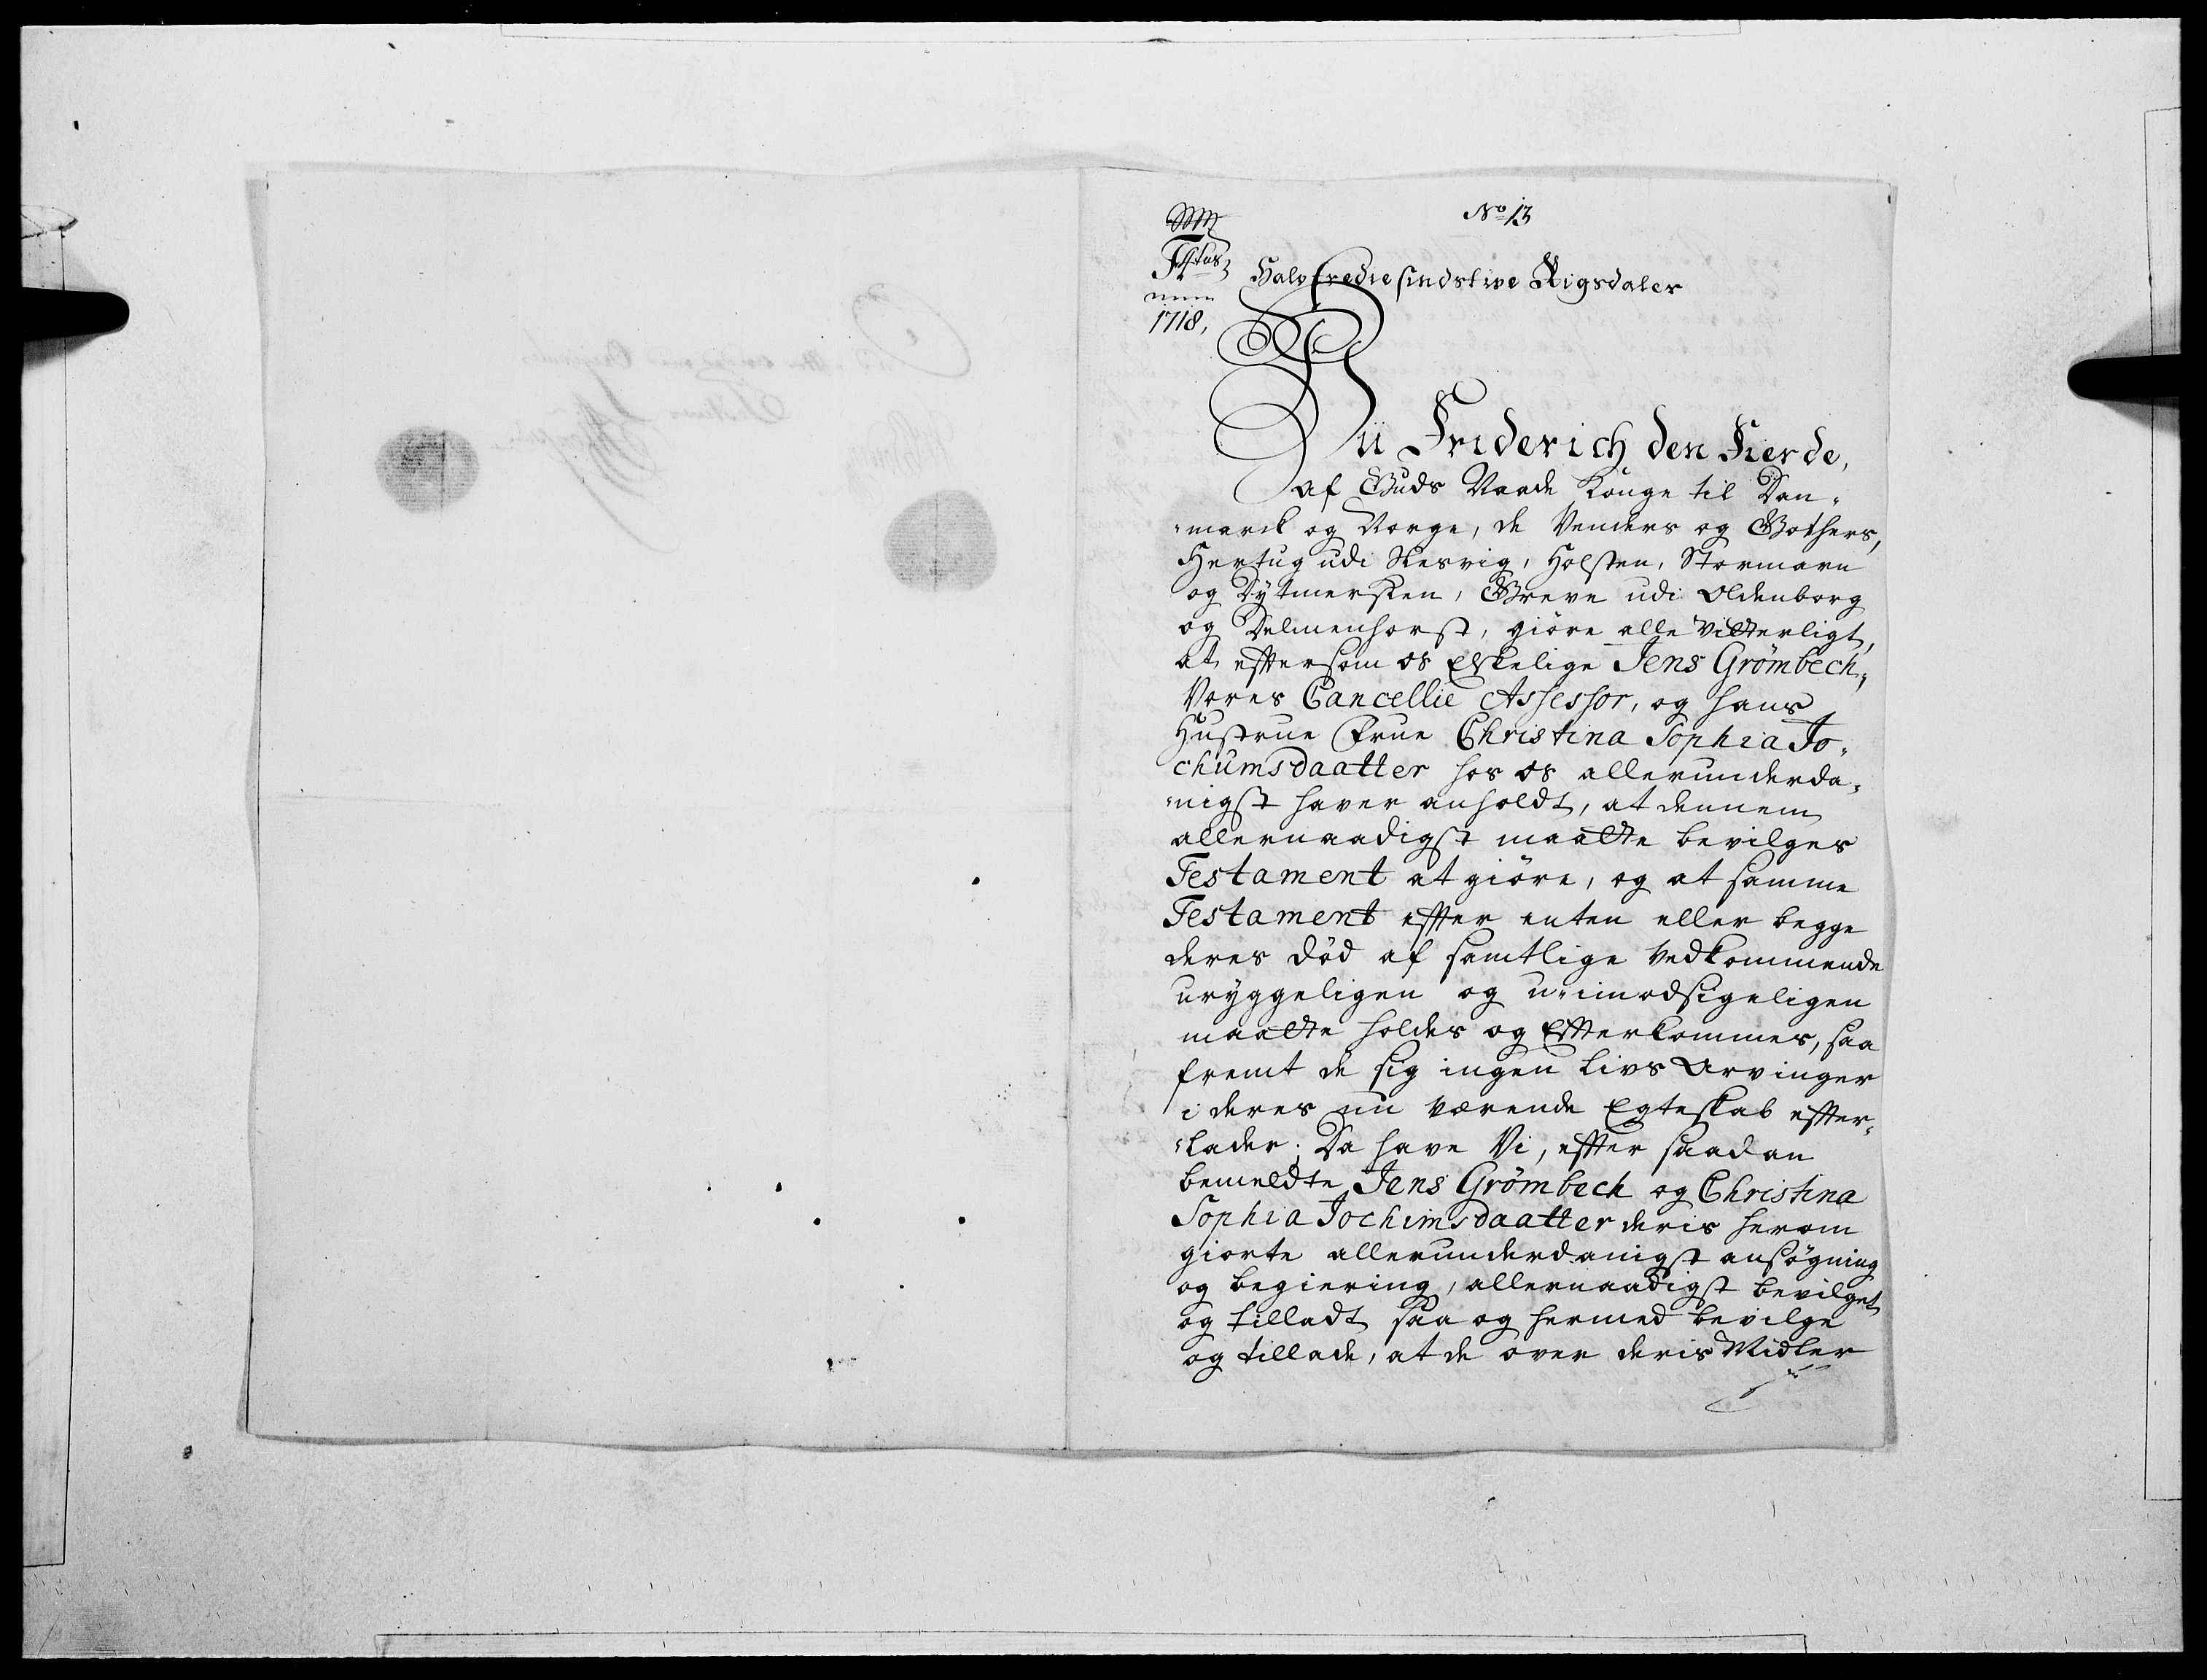 No 13
F4tus
1718,
Halvtredie sindstive Rigsdaler
Vii Friderich den Fierde,
af Guds Naade Konge til Dan-
marck og Norge, de Venders og Gothers,
Hertug udi Slesvig, Holsten, Stormarn
og Dytmersken, Greve udi Oldenborg
og Delmenhorst, giöre alle vitterligt,
at eftersom os Elskelige Jens Grömbech,
Vores Cancellie Assessor, og hans
Hustrue Frue Christina Sophia Jo-
chumsdaatter hos os allerunderda-
nigst haver anholdt, at dennem
allernaadigst maatte bevilges
Testament at giöre, og at samme
Testament efter enten eller begge
deres död af samtlige vedkommende
uryggeligen og u-imodsigeligen
maatte holdes og Efterkommes, saa
fremt de sig ingen Livs Arvinger
i deres nu værende Egteskab efter-
lader; Da have Vi, efter saadan
bemeldte Jens Grömbech og Christina
Sophia Jochimsdaatter deris herom
giorte allerunderdanigst ansögning
og begiering, allernaadigst bevilget
og tilladt saa og hermed bevilge
og tillade, at de over deris Midler